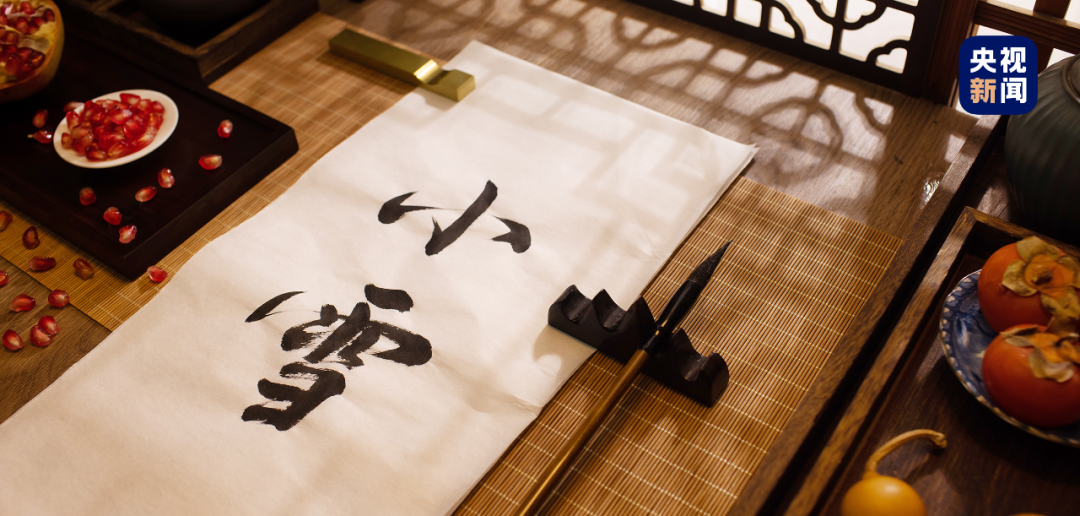 小
雪
央视
新闻